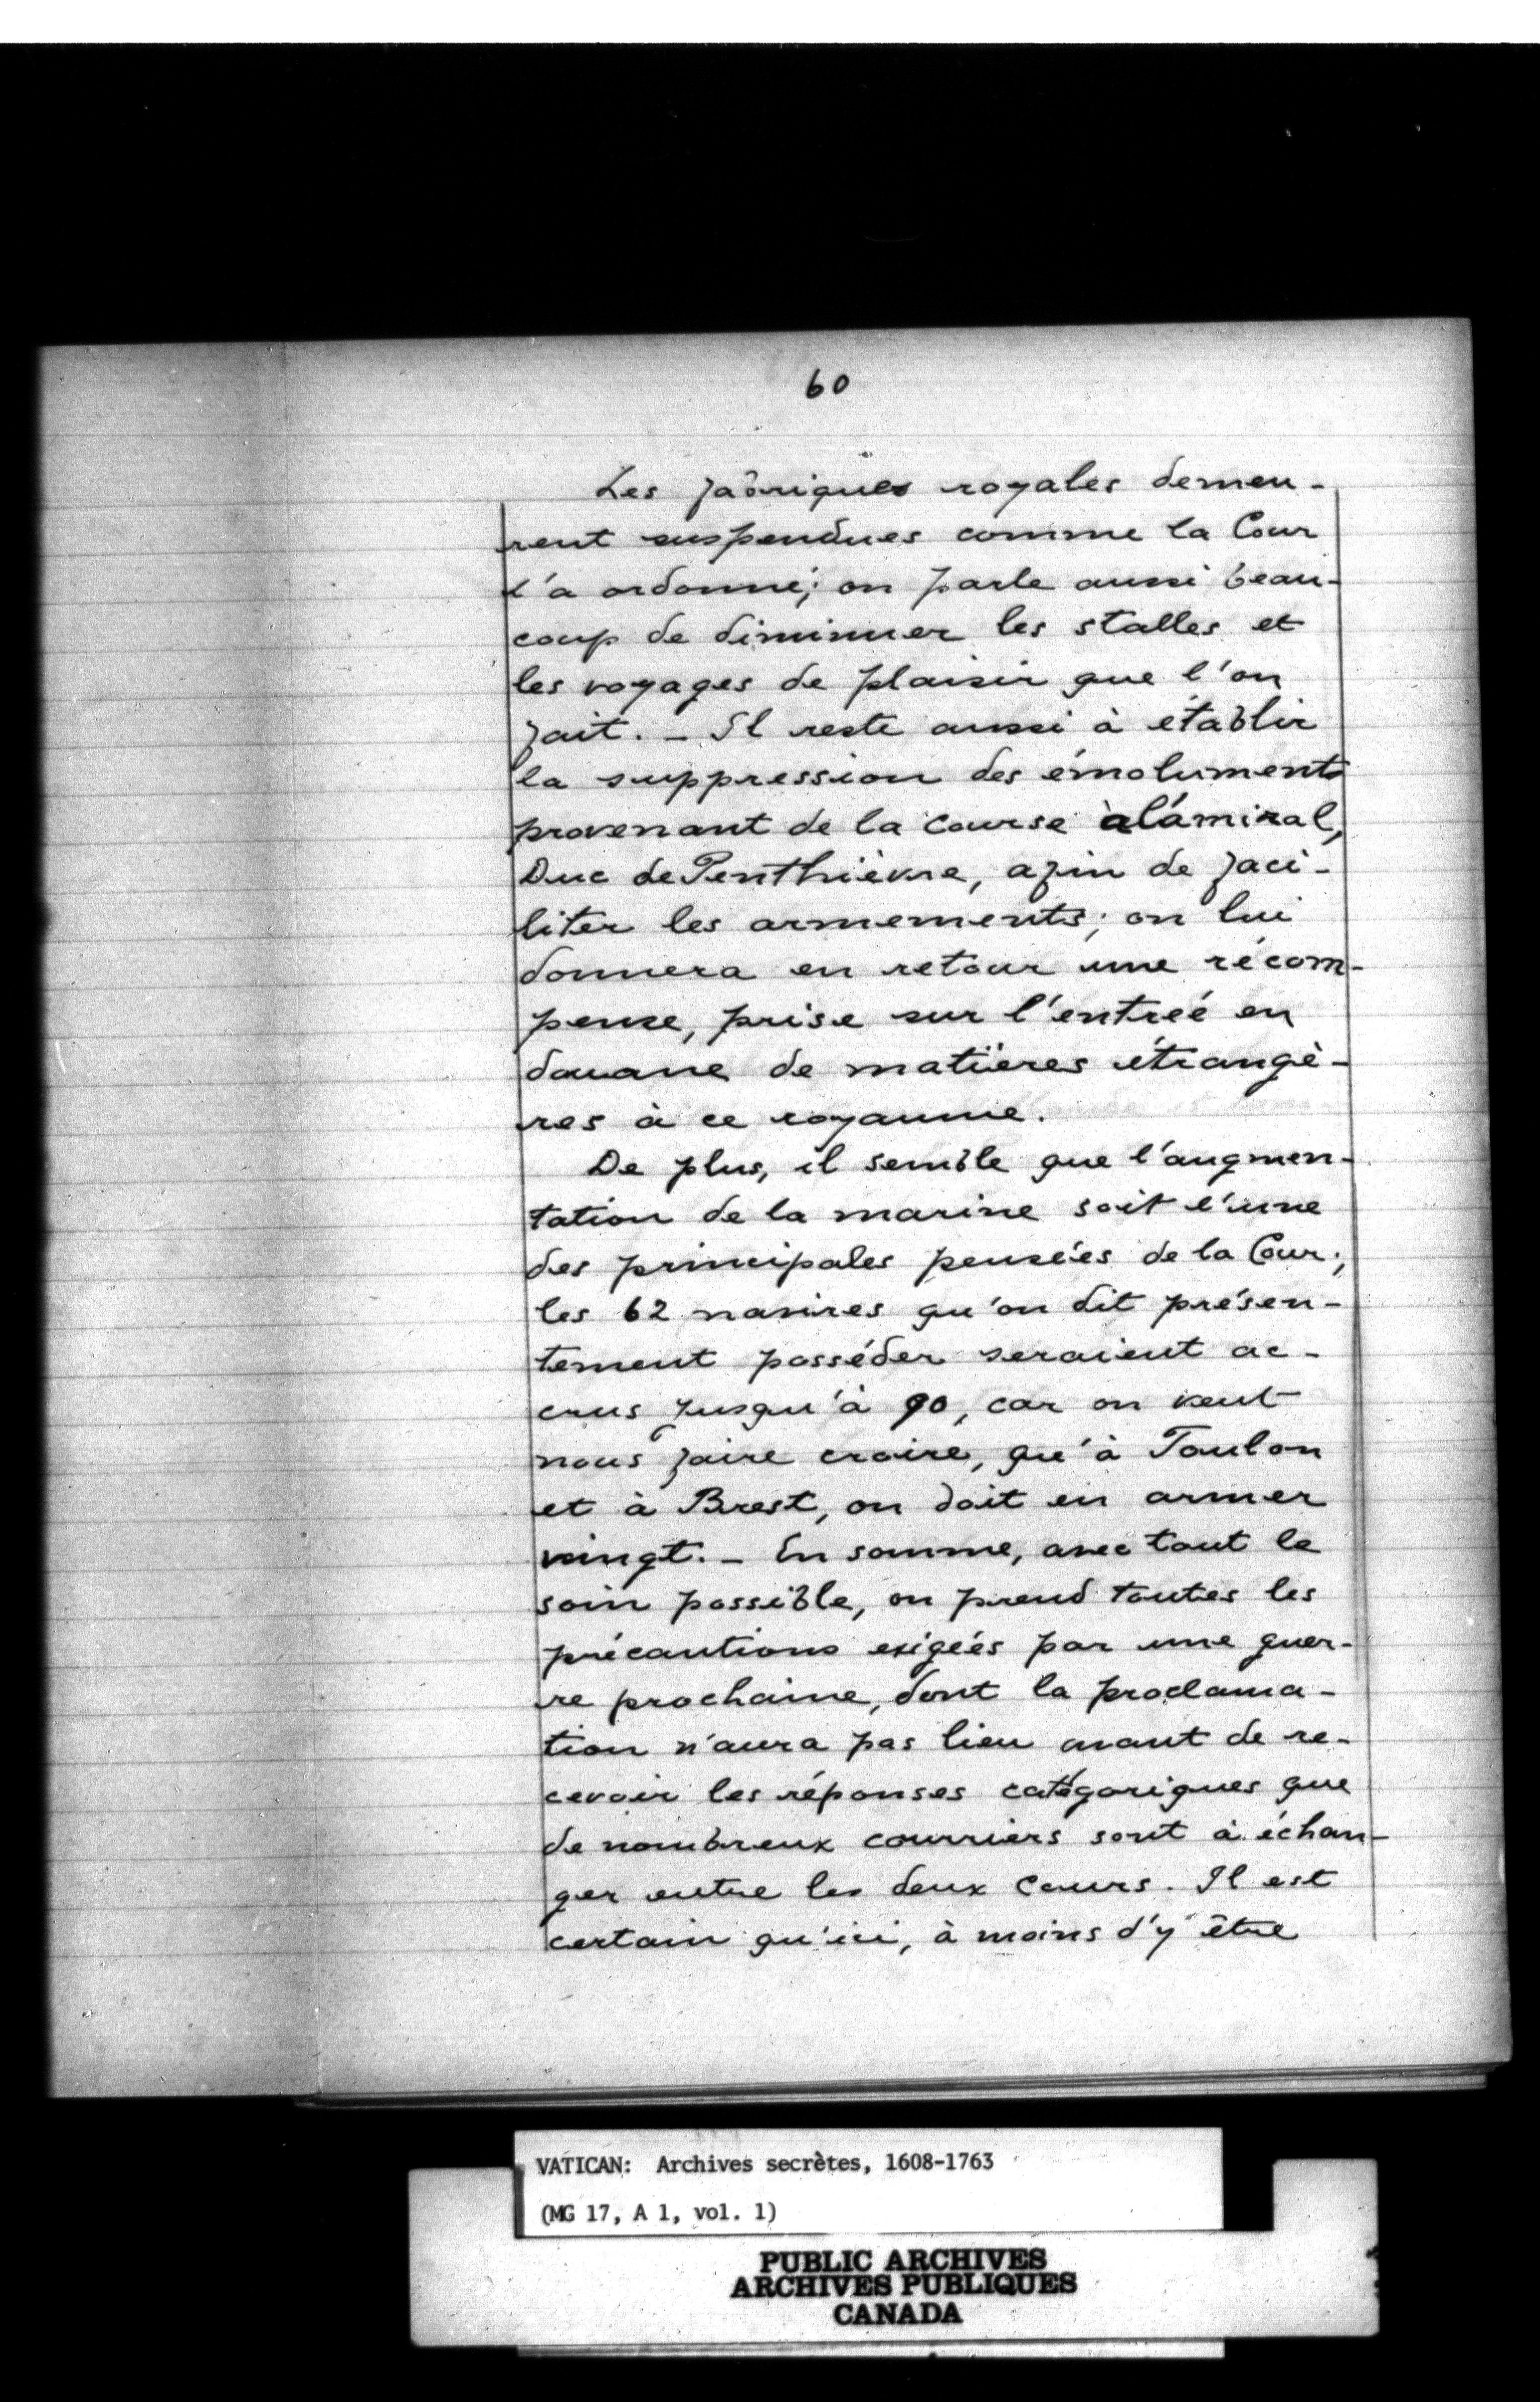 60
Les fabriques royales demeu-
rent suspendues comme la Cour
l'a ordonné; on parle aussi beau-
coup de diminuer les stalles et
les voyages de plaisir que l'on
fait. - Il reste aussi à établir
la suppression des émoluments
provenant de la course à l'amiral,
Duc de Penthièvre, afin de faci-
liter les armements; on lui
donnera en retour une récom-
pense, prise sur l'entrée en
douane de matières étrangè-
res à ce royaume.
De plus, il semble que l'augmen-
tation de la marine soit l'une
des principales pensées de la Cour;
les 62 navires qu'on dit présen-
tement posséder seraient ac-
crus jusqu'à 90, car on veut
nous faire croire, qu'à Toulon
et à Brest, on doit en armer
vingt. - En somme, avec tout le
soin possible, on prend toutes les
précautions exigées par une guer-
re prochaine, dont la proclama-
tion n'aura pas lieu avant de re-
cevoir les réponses catégoriques que
de nombreux courriers sont à échan-
ger entre les deux Cours. Il est
certain qu'ici, à moins d'y être
VATICAN: Archives secrètes, 1608-1763
(MG 17, A 1, vol. 1)
PUBLIC ARCHIVES
ARCHIVES PUBLIQUES
CANADA